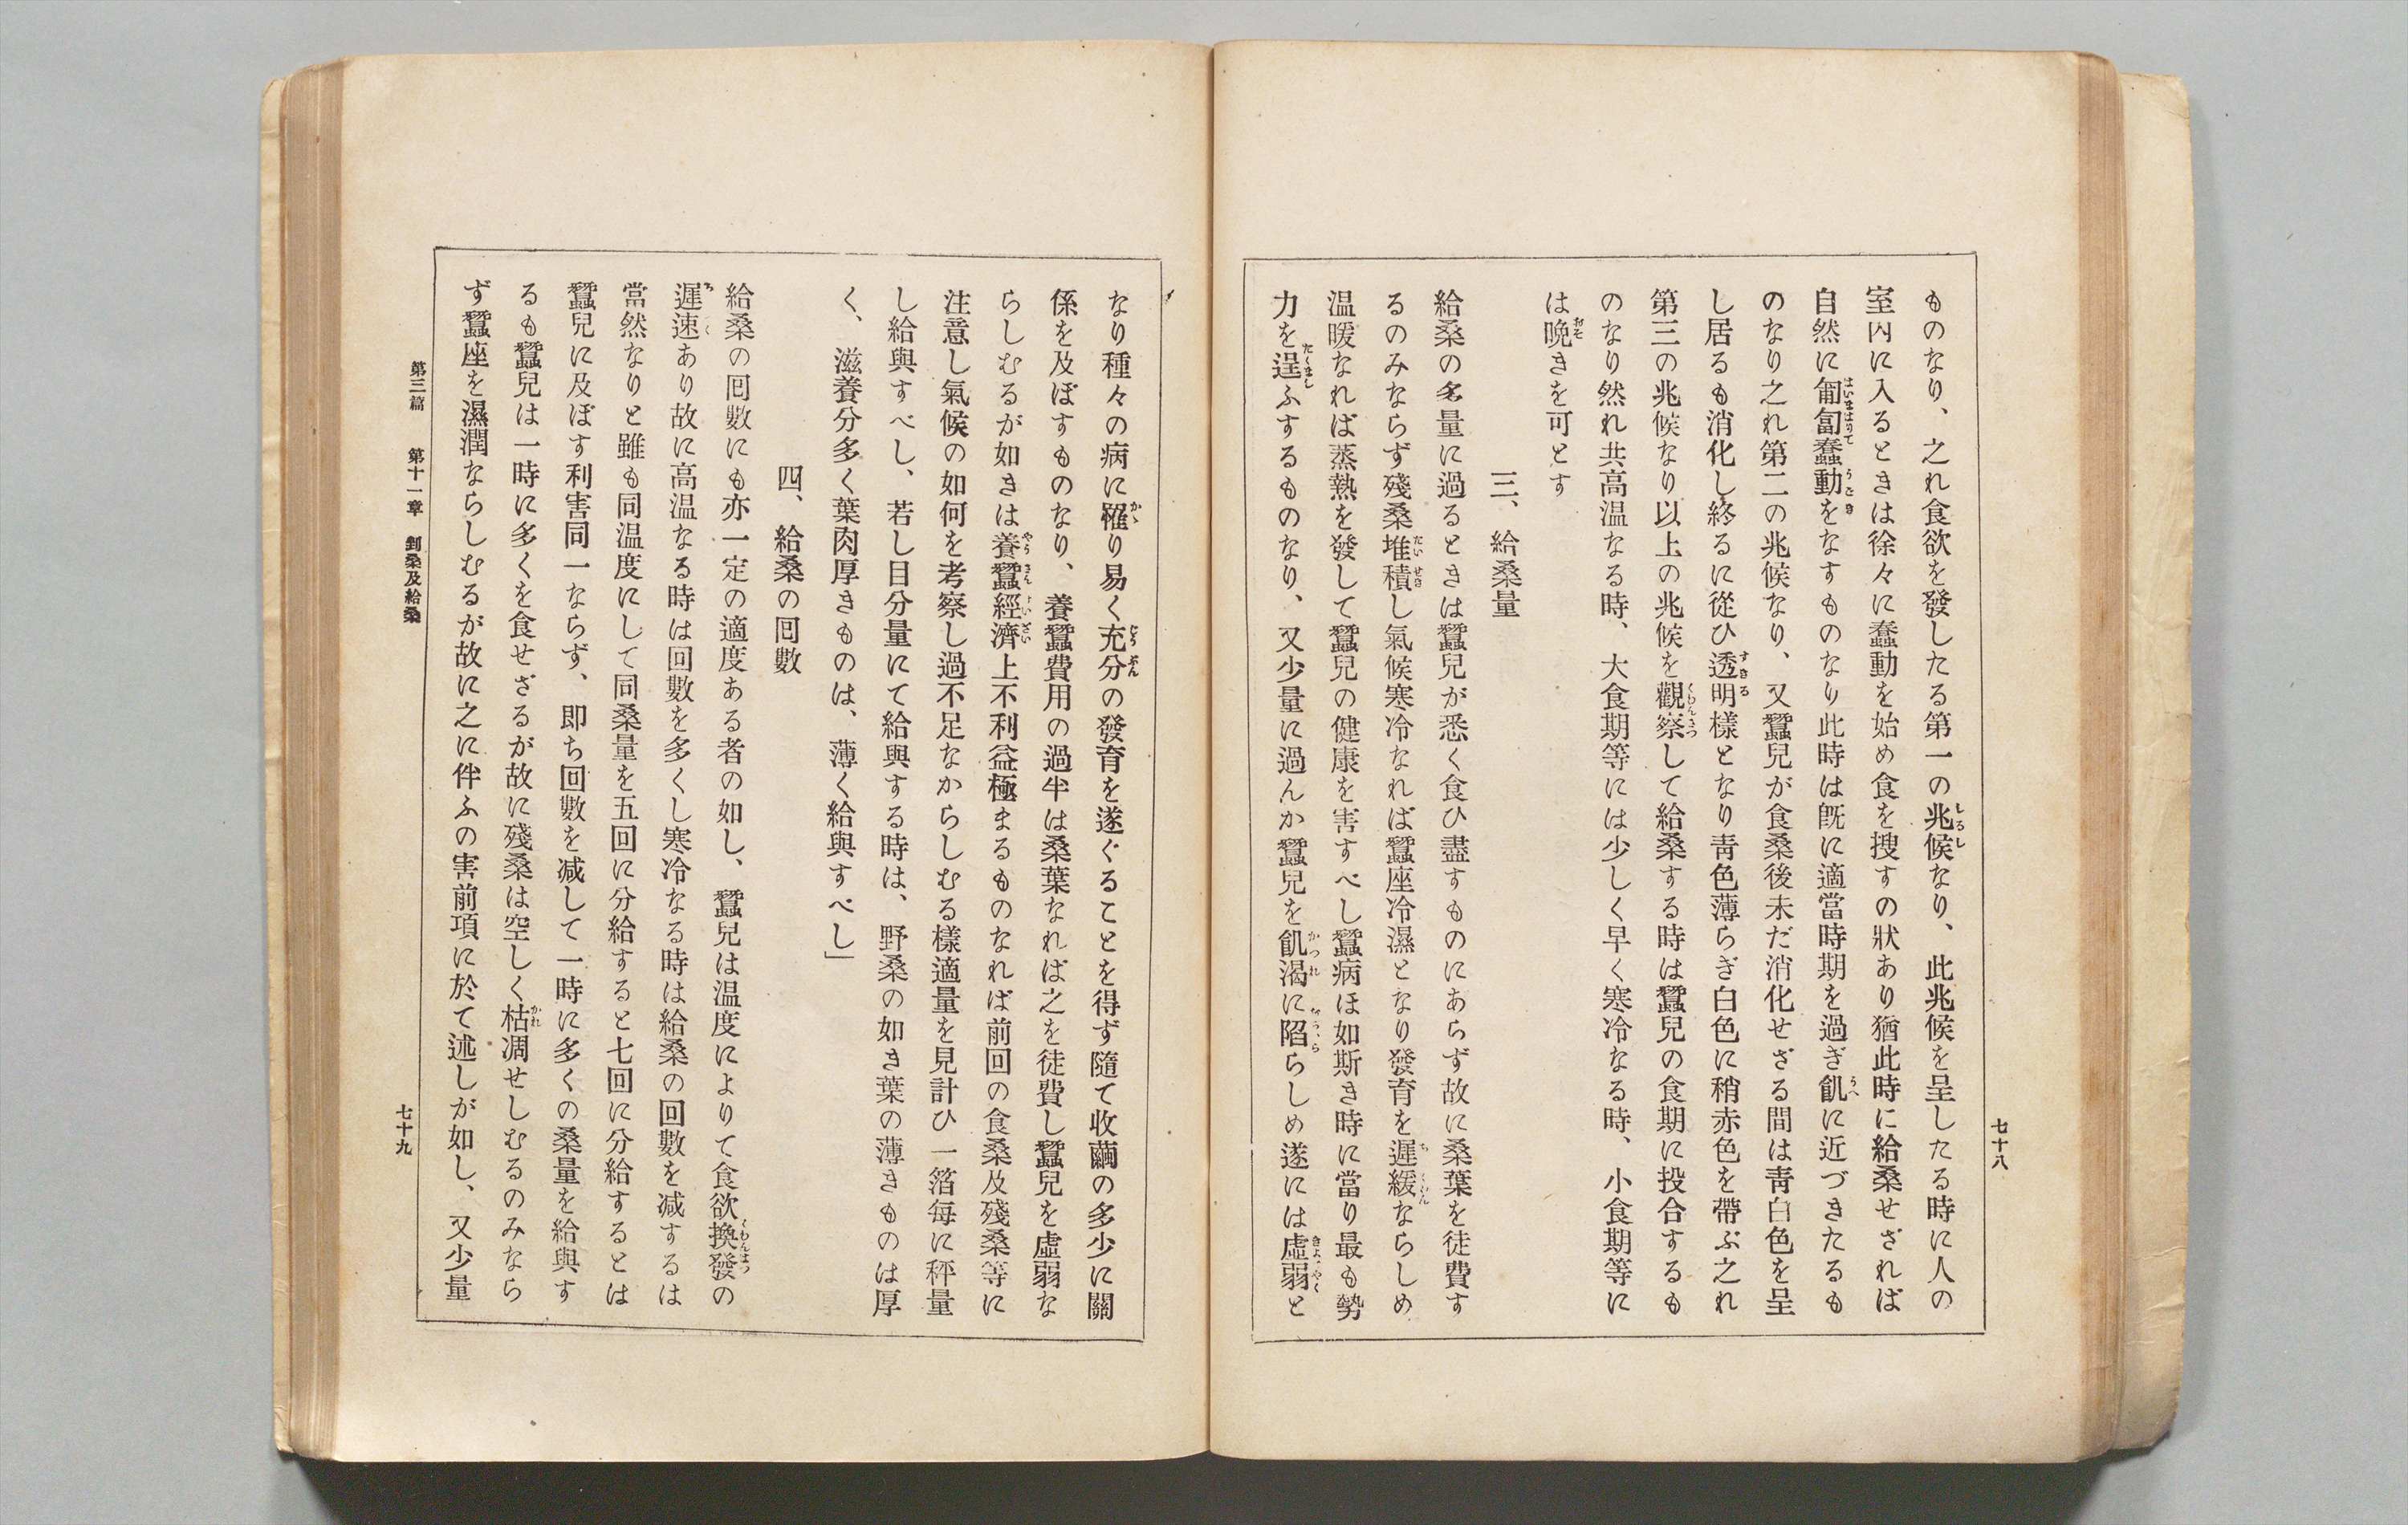 七十八
ものなり、之れ食欲を發したる第一の兆候なり、此兆候を呈したる時に人の
室内に入るときは徐々に蠢動を始め食を搜すの狀あり猶此時に給桑せざれば
自然に匍匐蠢動をなすものなり此時は旣に適當時期を過ぎ飢に近づきたるも
のなり之れ第二の兆候なり、又蠶兒が食桑後未だ消化せざる間は靑白色を呈
し居るも消化し終るに從ひ透明樣となり靑色薄らぎ白色に稍赤色を帶ぶ之れ
第三の兆候なり以上の兆候を觀察して給桑する時は蠶兒の食期に投合するも
のなり然れ共高温なる時、大食期等には少しく早く寒冷なる時、小食期等に
は晩きを可とす
三、給桑量
給桑の多量に過るときは蠶兒が悉く食ひ盡すものにあらず故に桑葉を徒費す
るのみならず殘桑堆積し氣候寒冷なれば蠶座冷濕となり發育を遲緩ならしめ
温暖なれば蒸熱を發して蠶兒の健康を害すべし蠶病ほ如斯き時に當り最も勢
力を逞ふするものなり、又少量に過んか蠶兒を飢渴に陷らしめ遂には虛弱と
なり種々の病に罹り易く充分の發育を遂ぐることを得ず隨て收繭の多少に關
係を及ぼすものなり、養蠶費用の過半は桑葉なれば之を徒費し蠶兒を虛弱な
らしむるが如きは養蠶經濟上不利益極まるものなれば前回の食桑及殘桑等に
注意し氣候の如何を考察し過不足なからしむる樣適量を見計ひ一箔每に秤量
し給與すべし、若し目分量にて給與する時は、野桑の如き葉の薄きものは厚
く、滋養分多く葉肉厚きものは、薄く給與すべし」
四、給桑の囘數
給桑の囘數にも亦一定の適度ある者の如し、蠶兒は温度によりて食欲換發の
遲速あり故に高温なる時は回數を多くし寒冷なる時は給桑の回數を减するは
當然なりと雖も同温度にして同桑量を五回に分給すると七回に分給するとは
蠶兒に及ぼす利害同一ならず、卽ち回數を减して一時に多くの桑量を給與す
るも蠶兒は一時に多くを食せざるが故に殘桑は空しく枯凋せしむるのみなら
ず蠶座を濕潤ならしむるが故に之に伴ふの害前項に於て述しが如し、又少量
第三篇　第十一章　剉桑及給桑
七十九